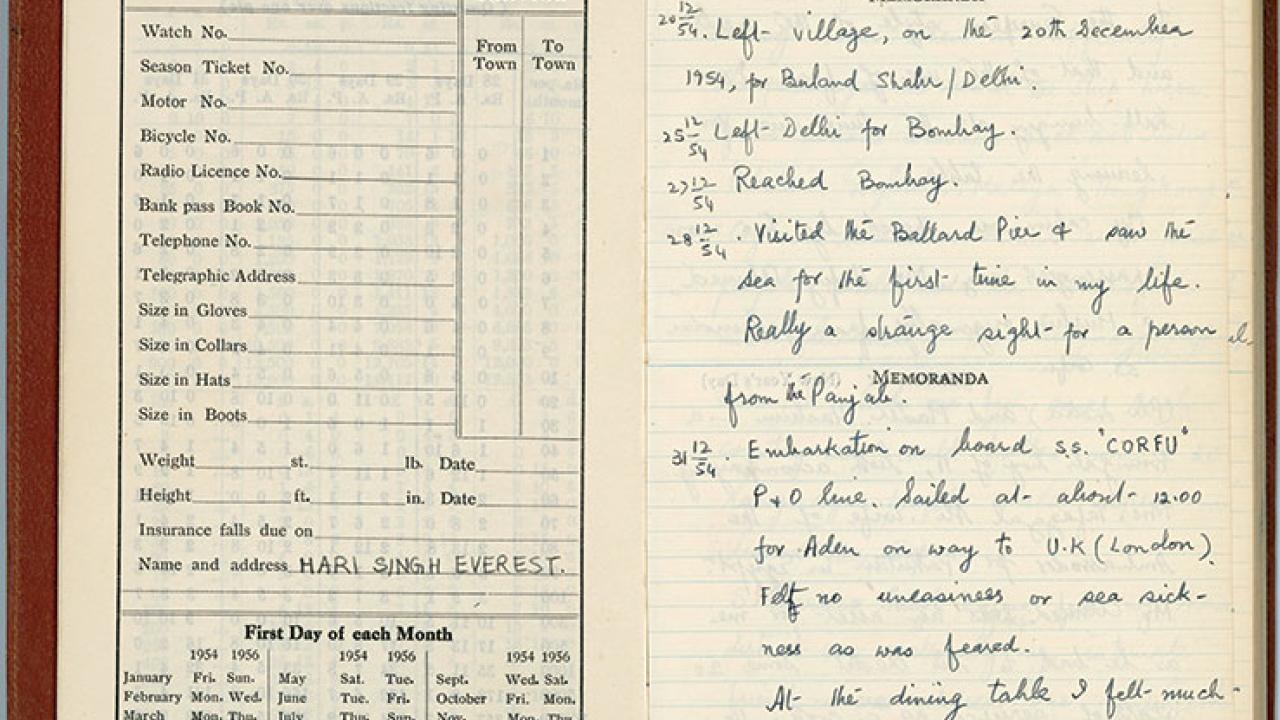 Watch No.
Season Ticket No.
Motor No.
Bicycle No.
Radio Licence No.
Bank pass Book No.
Telephone No.
Telegraphic Address
Size in Gloves
Size in Collars
Size in Hats
Size in Boots
From Town
To Town
Weight st. lb. Date
Height ft. in. Date
Insurance falls due on
Name and address HARI SINGH EVEREST.
First Day of each Month
1954 1956 1954 1956 1954 1956
January Fri. Sun. May Sat. Tue. Sept. Wed. Sat.
February Mon. Wed. June Tue. Fri. October Fri. Mon.
March Mon. Thu. July Thu. Sun. Nov. Mon. Thu.
MEMORANDA
20 12/54. Left village, on the 20th December
1954, for Buland Shahr/Delhi.
25 12/54 Left Delhi for Bombay.
27 12/54 Reached Bombay.
28 12/54. Visited the Ballard Pier & saw the
sea for the first time in my life.
Really a strange sight for a person
MEMORANDA
from the Panjab.
31 12/54. Embarkation on board S.S. "CORFU"
P & O line. Sailed at about 12.00
for Aden on way to U.K (London).
Felt no uneasiness or sea sick-
ness as was feared.
At the dining table I felt much